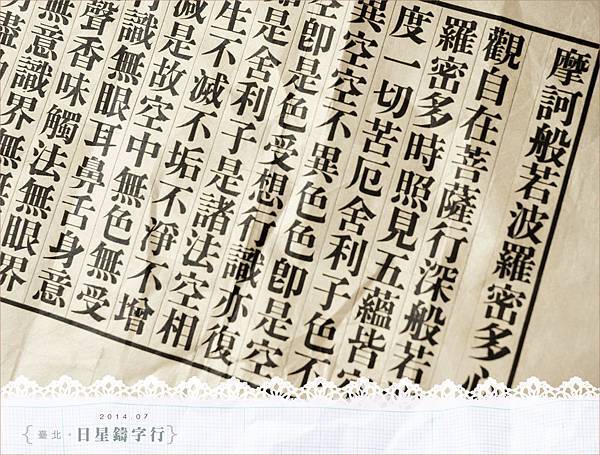 摩訶般若波羅密多心
觀自在菩薩行深般若
羅密多時照見五蘊皆空
度一切苦厄舍利子色不
異空空不異色色即是空
空即是色受想行識亦復
是舍利子是諸法空相
生不滅不垢不淨不增
減是故空中無色無受
行識無眼耳鼻舌身意
聲香味觸法無眼界
無意識界無
盡
2014.07
{臺北·日星鑄字行}